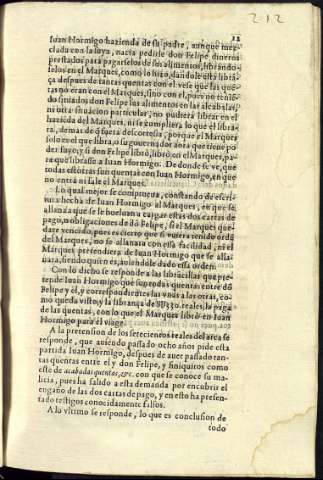 212
12
Iuan Hormigo hazienda de su padre, aunque mez-
clada con la suya, nacia pedirle don Felipe dineros
prestados para pagarselos de sus alimentos, librando
selos en el Marques, como lo hizo, dandole esta librã-
ça despues de tantas quentas con el, vese que las que-
tas no eran con el Marques, sino con el, pues no tenien-
do situados don Felipe sus alimentos en las alcabalas,
ni otra situacion particular, no pudiera librar en el
hazienda del Marques, ni se cumpliera lo que el libra-
ra, demas de q̃ fuera descortesia, porque el Marques
solo es el que libra, o su gouernador aora que tiene po
der suyo; y si don Felipe librò, librò en el Marques, pa-
ra que librasse a Iuan Hormigo. De donde se ve, que
todas estotras sun quentas con Iuan Hormigo, en que
no entra ni sale el Marques.
Lo qual mejor se comprueua, constando de escri-
tura hecha de Iuan Hormigo al Marques, en que se
allana à que se le bueluan a cargar estas dos cartas de
pago, o obligaciones de dõ Felipe, si el Marques que-
dare vencido, pues es cierto que si vuiera tenido ordẽ
del Marques, no se allanara con esta facilidad, ni el
Marques pretendiera de Iuan Hormigo que se alla-
nara, siendo quien es, auiendole dado essa orden.
Con lo dicho se responde a las librãcillas que pre-
tende Iuan Hormigo que supone las quentas entre dõ
Felipe y èl, y correspondientes las vnas a las otras, co-
mo queda visto, y la librança de reales, la paga
de las quentas, con lo que el Marques librò en Iuan
Hormigo para el viage.
A la pretension de los setecientos reales del arca se
responde, que auiendo passado ocho años pide esta
partida Iuan Hormigo, despues de auer passado tan-
tas quentas entre el y don Felipe, y finiquitos como
este de acabadas quentas, &c. con que se conoce su ma-
licia, pues ha salido a esta demanda por encubrir el
engaño de las dos cartas de pago, y en esto ha presen-
tado testigos conocidamente falsos.
A lo vltimo se responde, lo que es conclusion de
todo